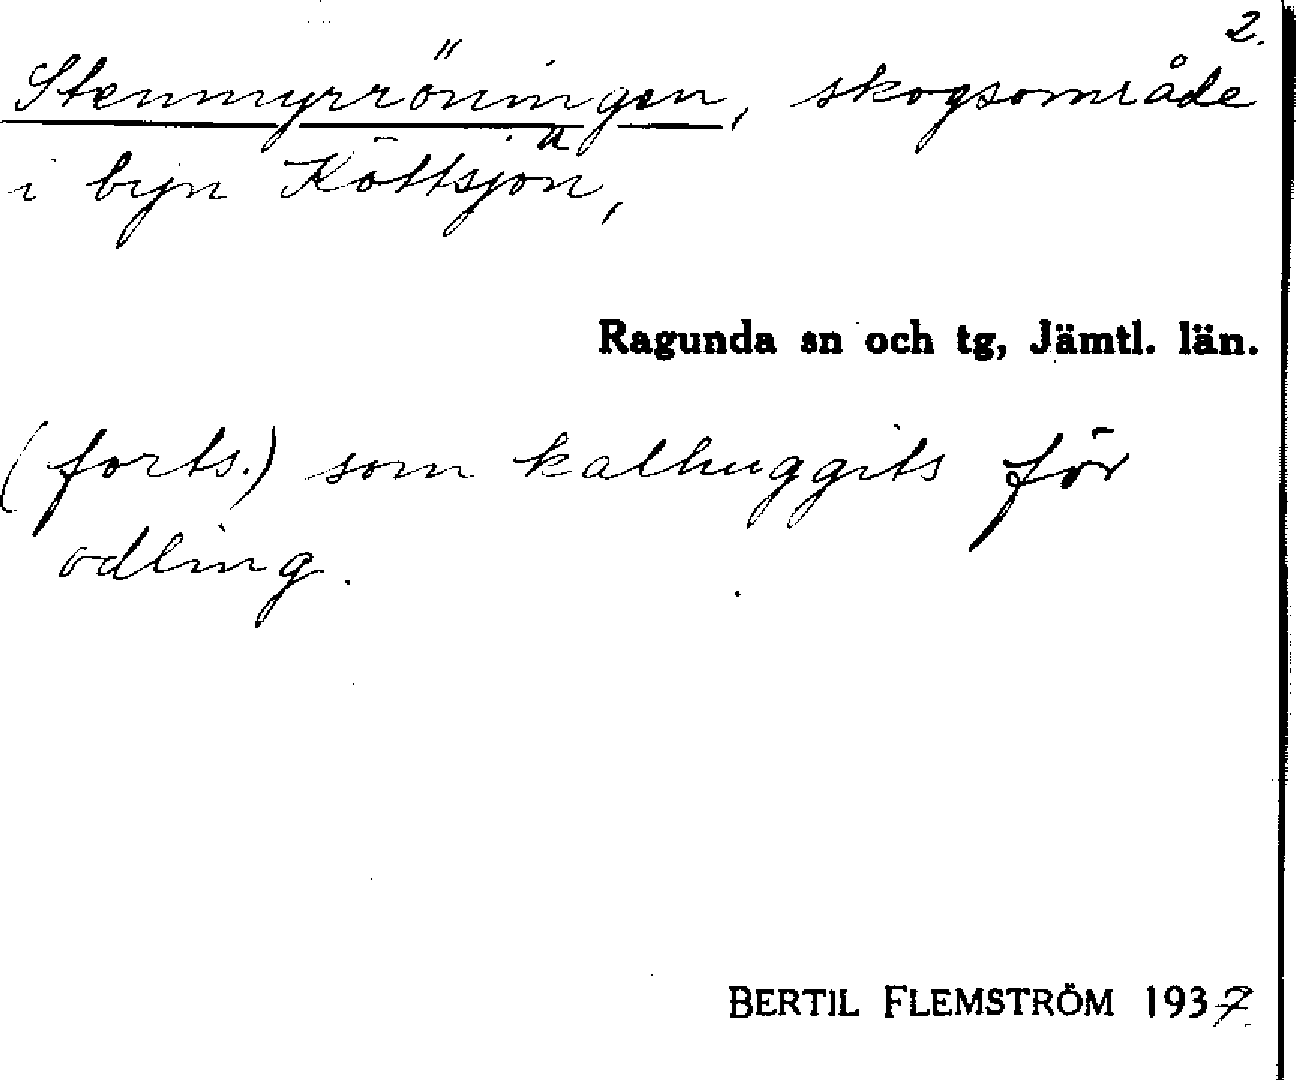 2.
Stenmyrröningen, skogsområde
i byn Köttsjön,
Ragunda sn och tg, Jämtl. län.
(forts.) som kalhuggits för
odling.
BERTIL FLEMSTRÖM 1937